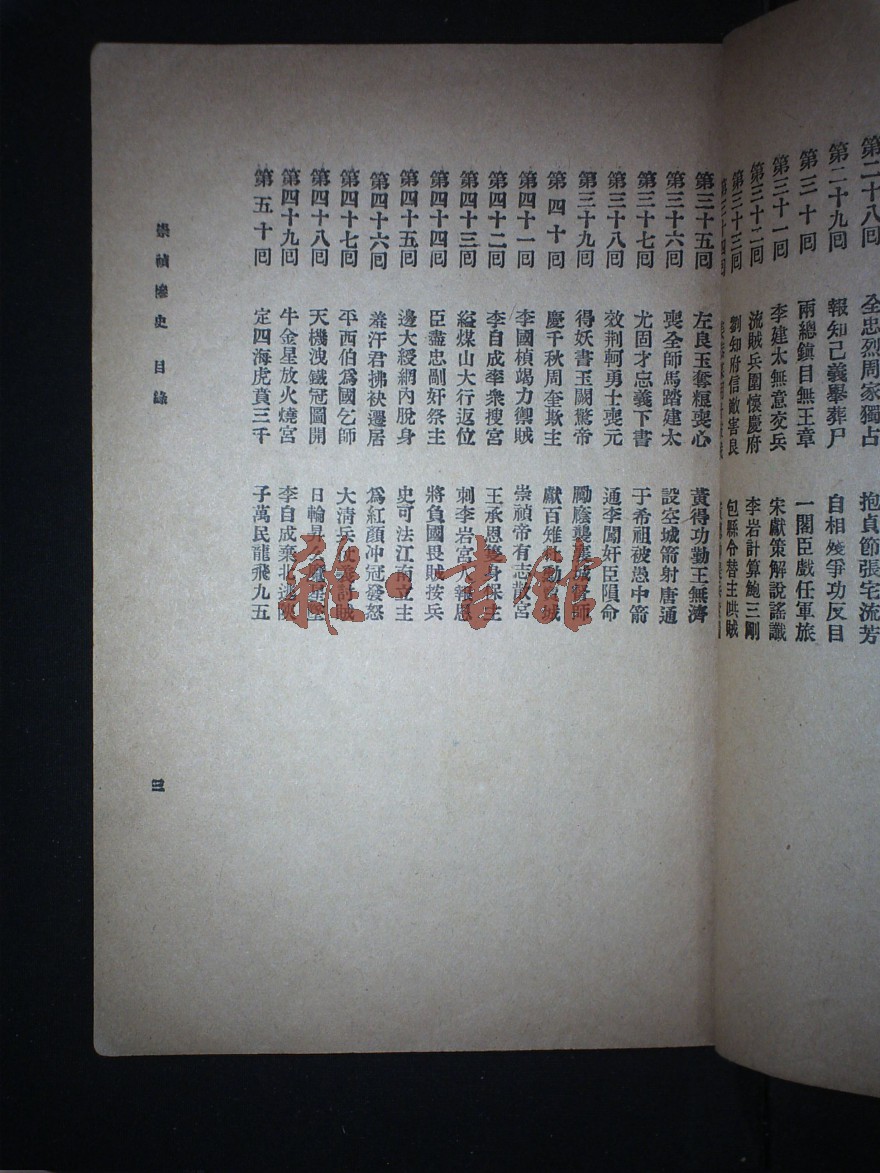 第二十八回 全忠烈周家獨占 抱貞節張宅流芳
第二十九回 報知己義舉葬尸 自相殘爭功反目
第三十回 兩總鎮目無王章 一閣臣戲任軍旅
第三十一回 李建太無意交兵 宋獻策解說謠讖
第三十二回 流賊兵圍懷慶府 李岩計算鮑三剛
第三十三回 劉知府信敵害良 包縣令替主哄賊
第三十四回
第三十五回 左良玉奪糧喪心 黃得功勤王無濟
第三十六回 喪全師馬踏建太 設空城箭射唐通
第三十七回 尤固才忘義下書 于希祖被愚中箭
第三十八回 效荆軻勇士喪元 通李闖奸臣隕命
第三十九回 得妖書玉闕驚帝 勵廕襲襄城督師
第四十回 慶千秋周奎欺主 獻百雉杜勳
第四十一回 李國楨竭力禦賊 崇禎帝有志
第四十二回 李自成率衆搜宮 王承恩
第四十三回 縊煤山大行返位 刺李岩宮人報恩
第四十四回 臣盡忠剮奸祭主 將負國畏賊按兵
第四十五回 邊大綬網內脫身 史可法江南立主
第四十六回 羞汗君拂袂遷居 爲紅顏冲冠發怒
第四十七回 平西伯爲國乞師 大清兵
第四十八回 天機洩鐵冠圖開 日輪昇
第四十九回 牛金星放火燒宮 李自成棄北
第五十回 定四海虎賁三千 子萬民龍飛九五
崇禎慘史 目錄
三
雜書館